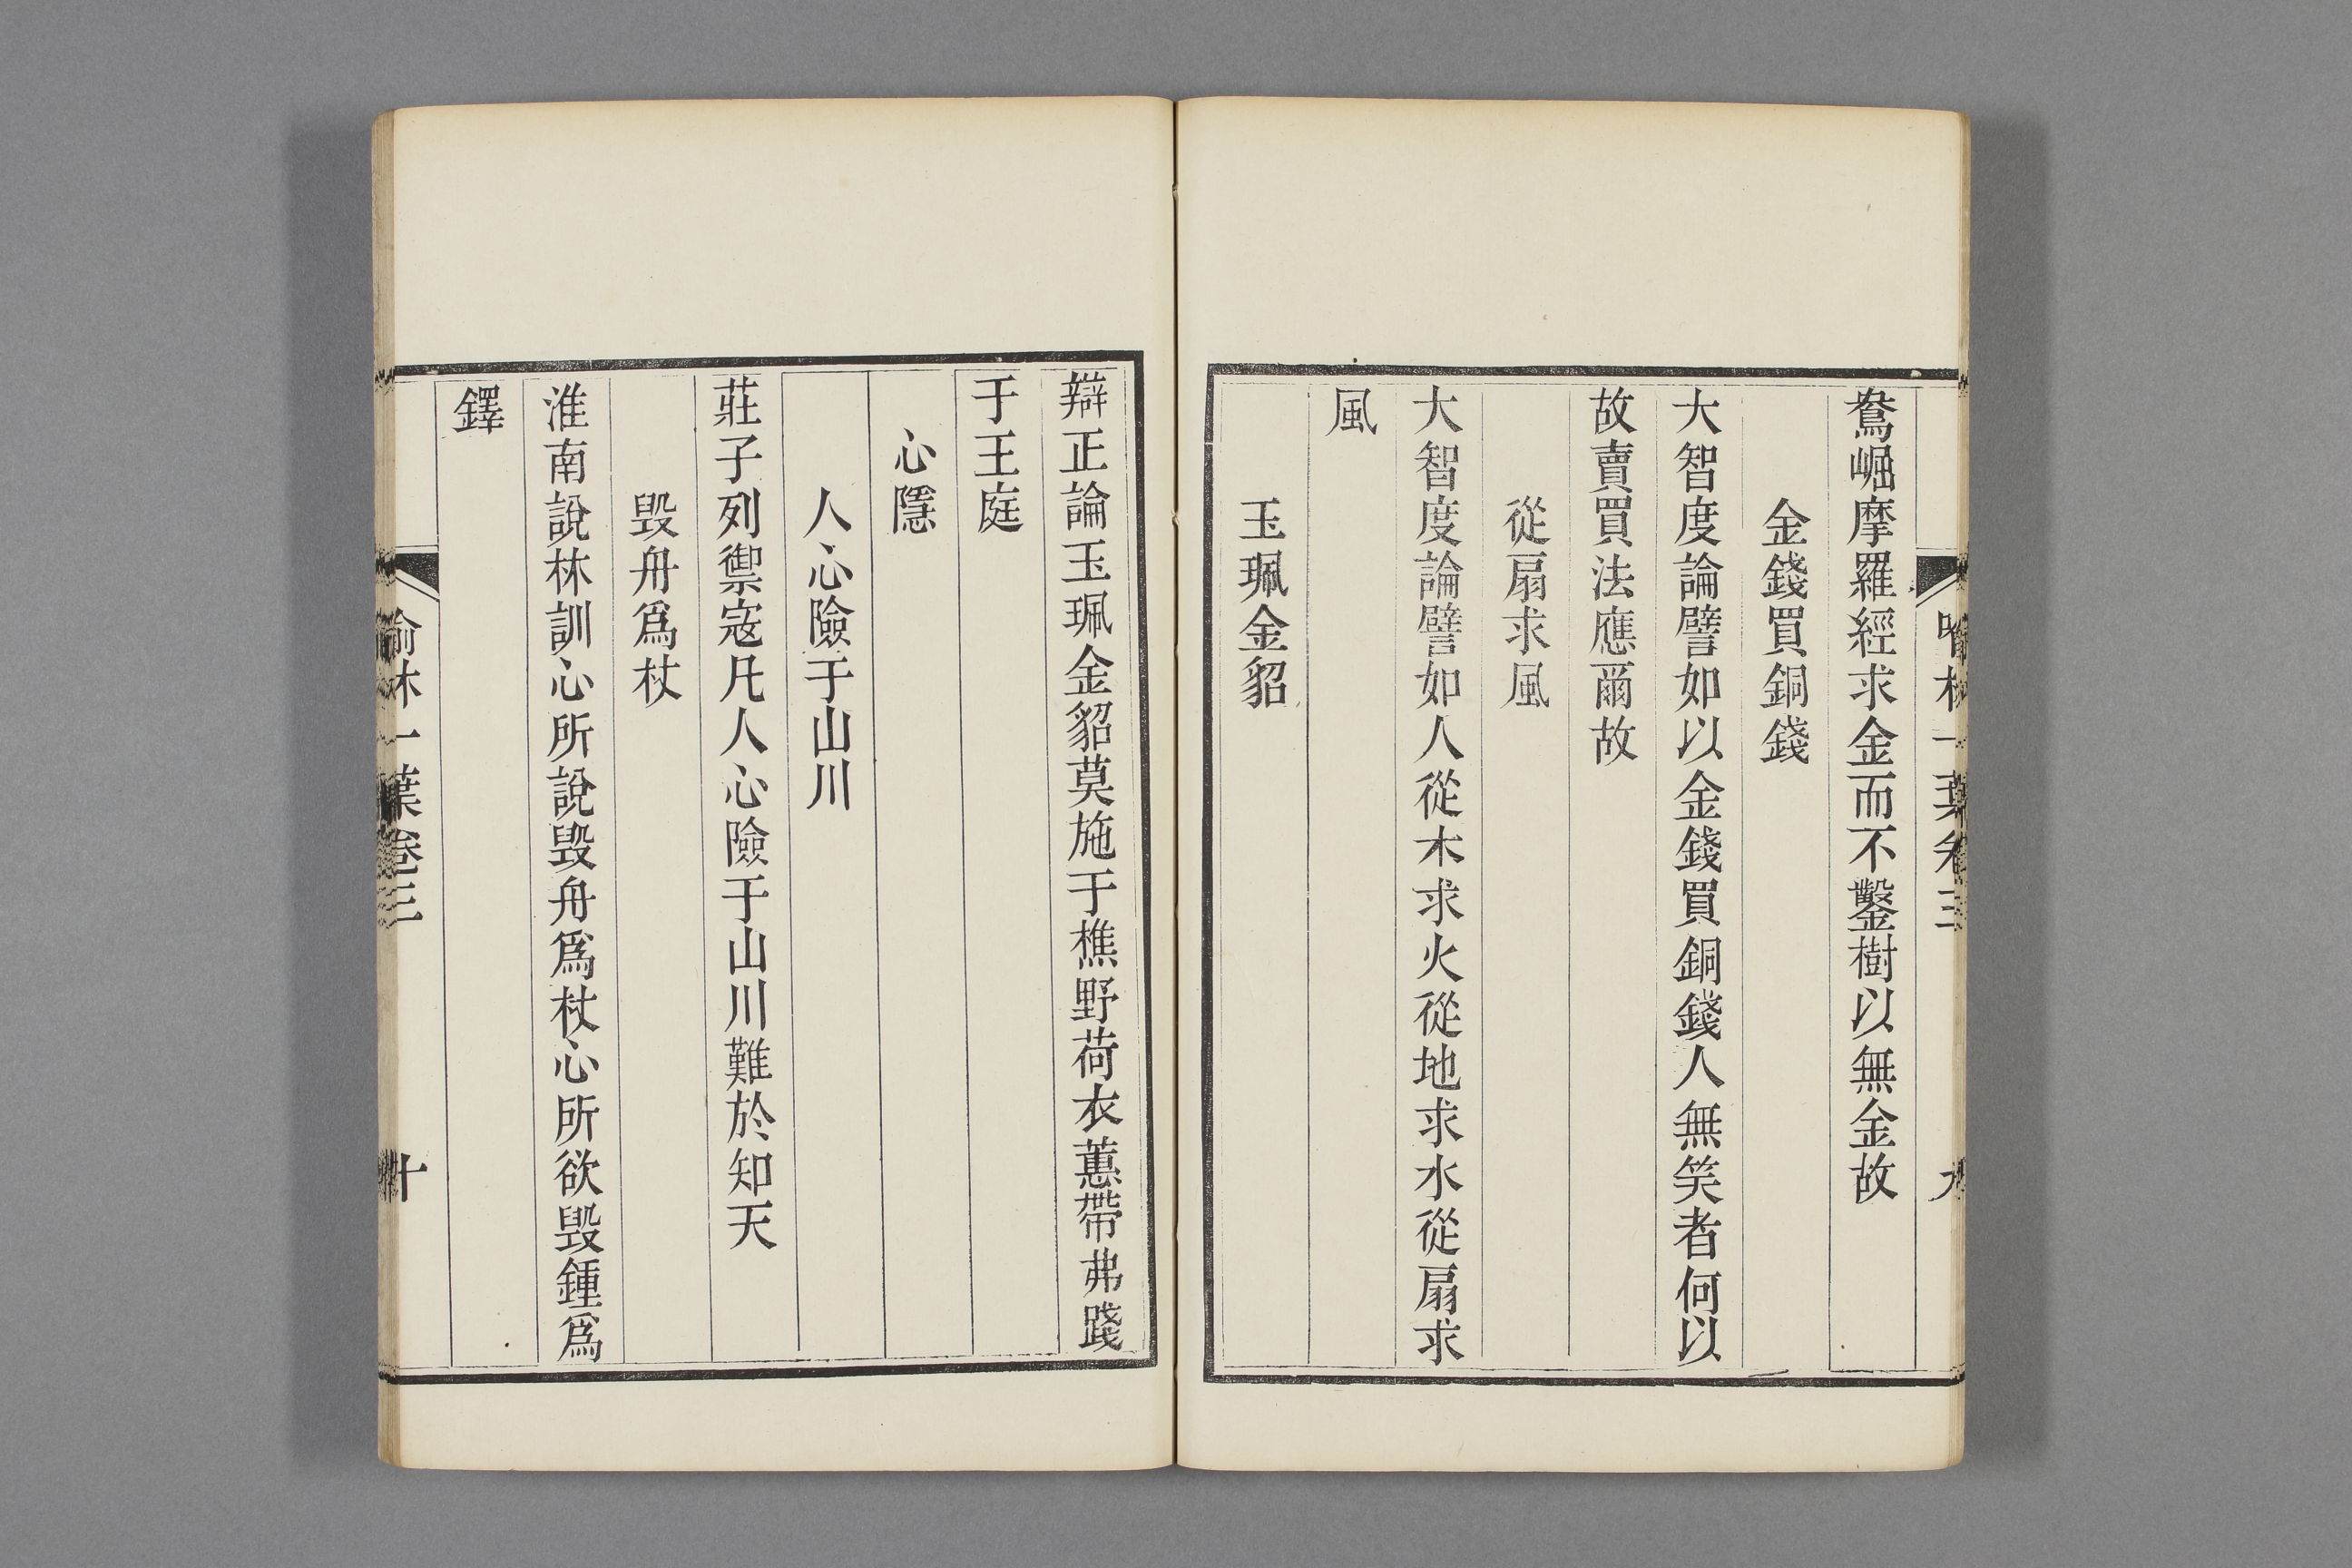 鴦崛摩羅經求金而不鑿樹以無金故
金錢買銅錢
大智度論譬如以金錢買銅錢人無笑者何以
故賣買法應爾故
從扇求風
大智度論譬如人從木求火從地求水從扇求
風
玉珮金貂
辯正論玉珮金貂莫施于樵野荷衣蕙帶弗踐
于王庭
心隱
人心險于山川
莊子列禦寇凡人心險于山川難於知天
毀舟爲杕
淮南說林訓心所說毀舟爲杕心所欲毀鍾爲
鐸
喻林一葉卷三
十